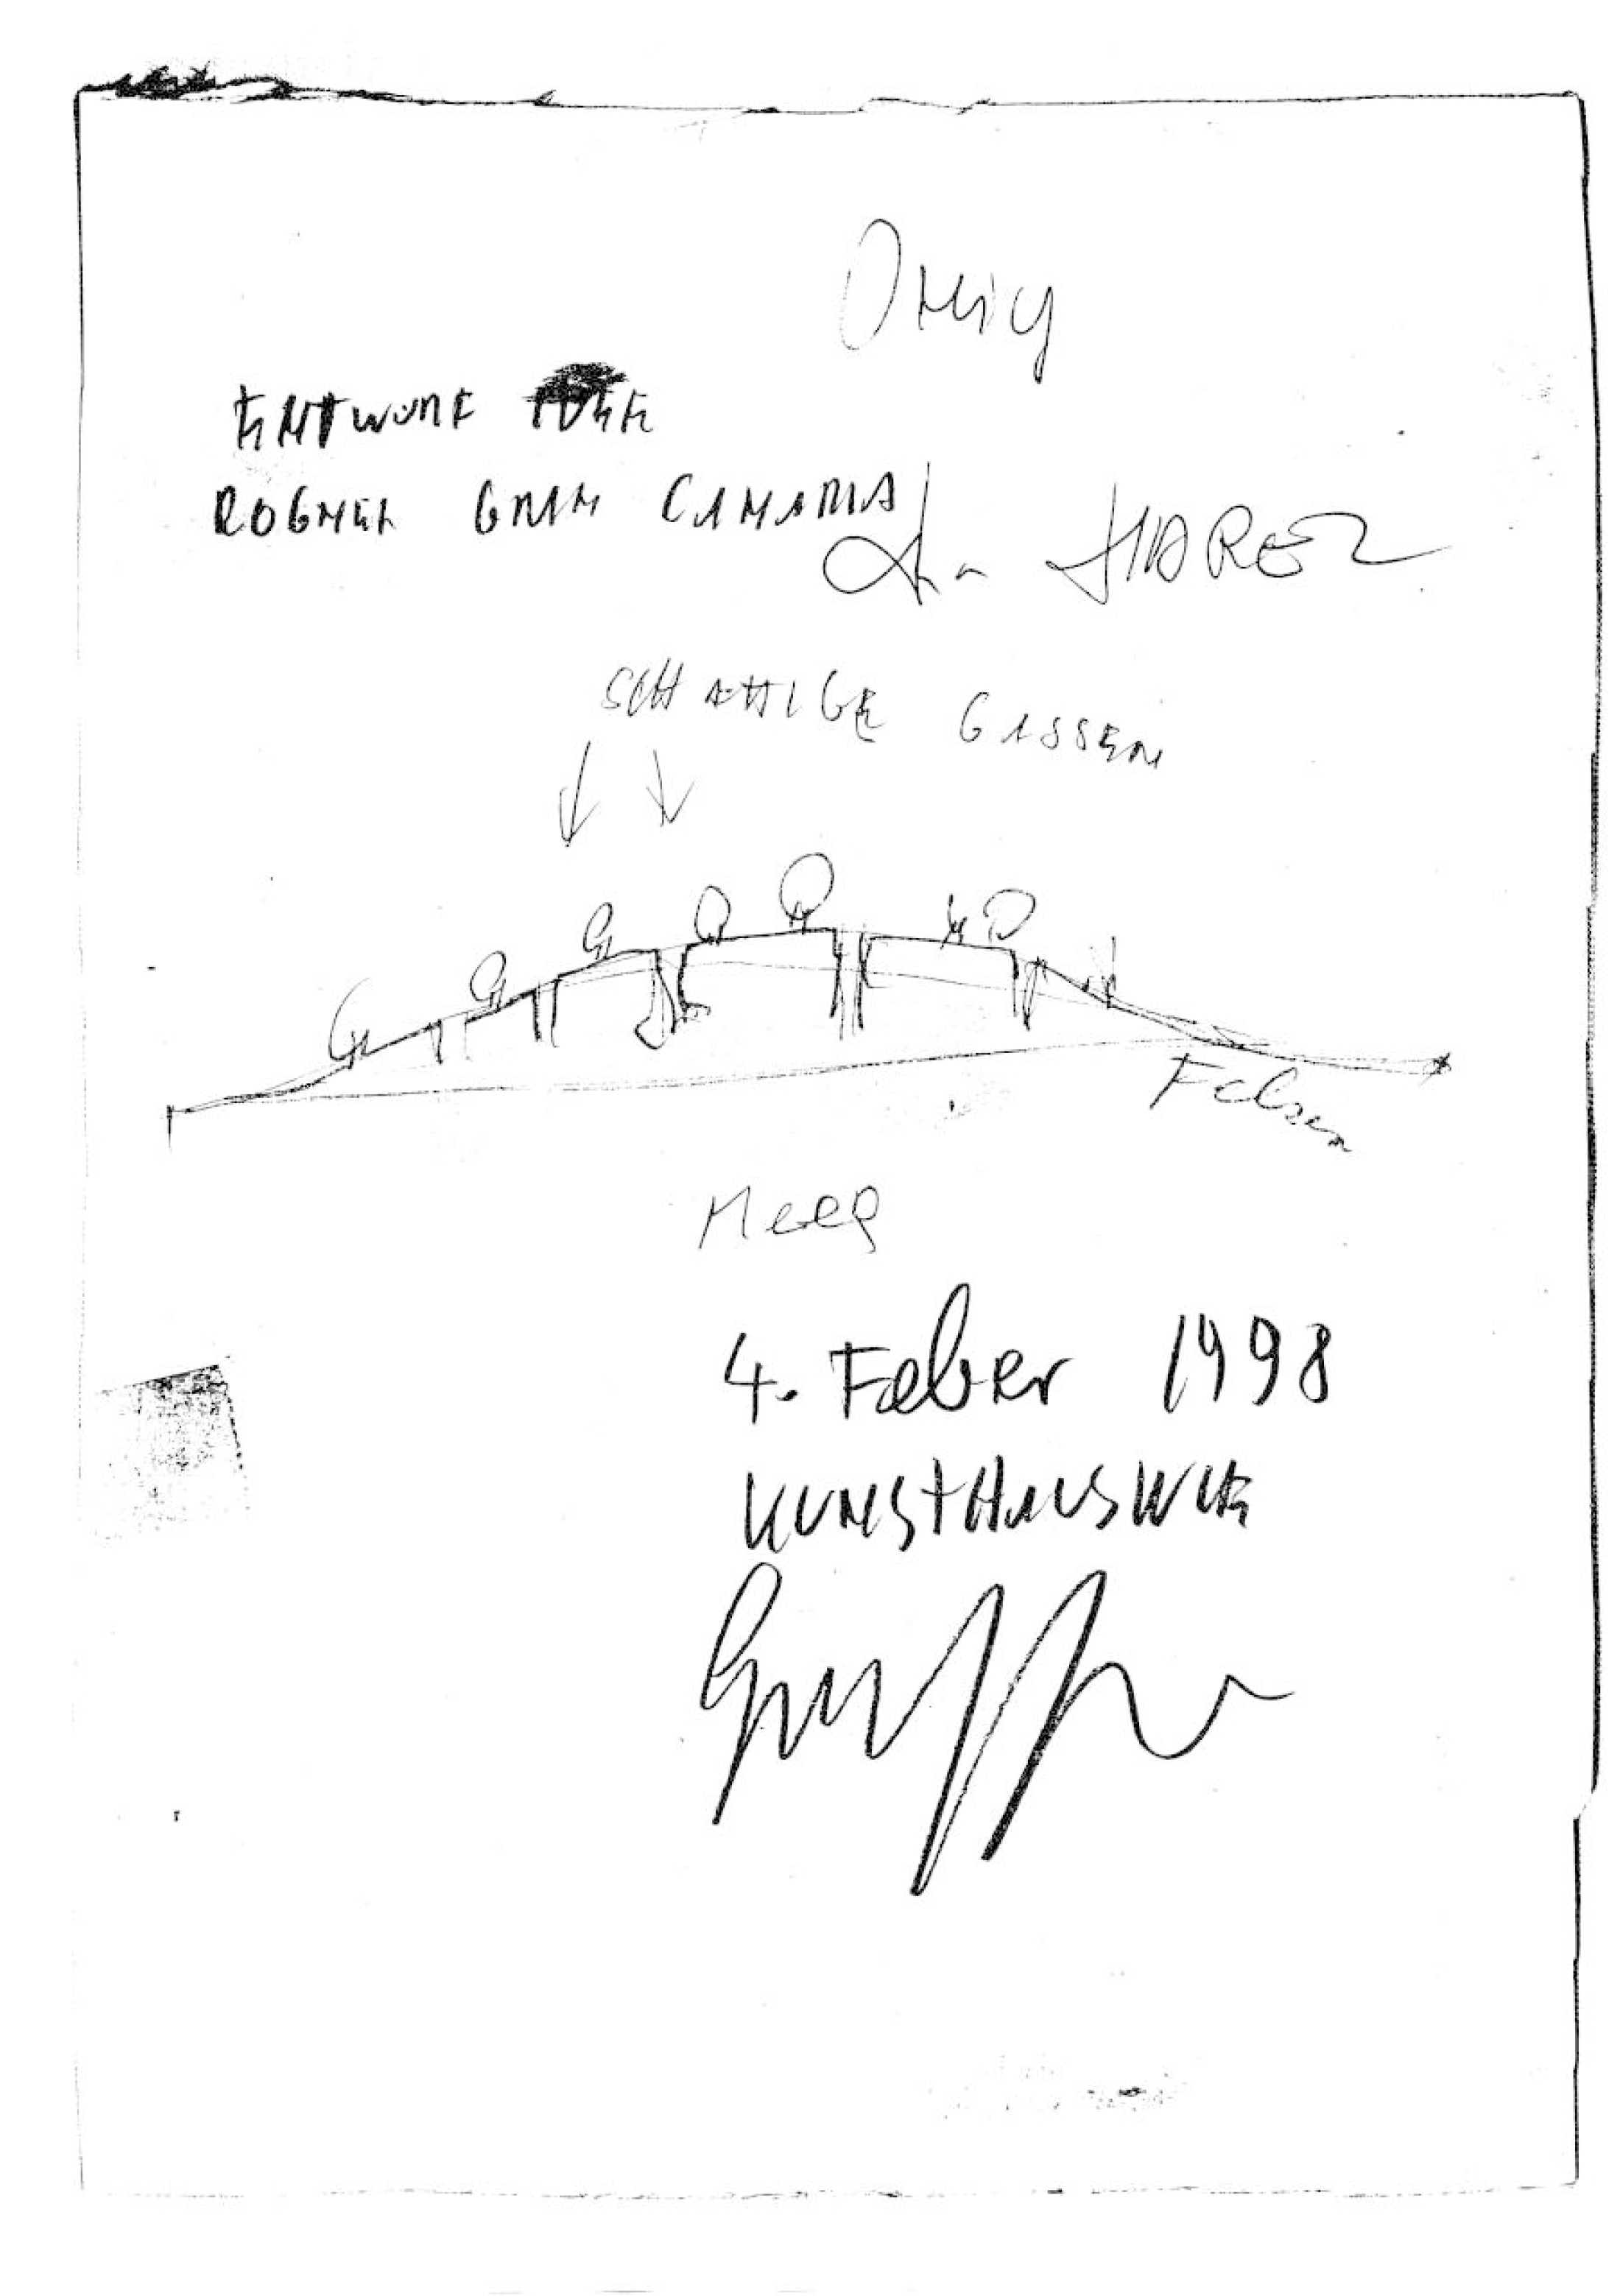 Orig
ENTWURF IDEE
ROGNER GRAN CANARIA
An HAREL
SCHATTIGE GASSEN
Felsen
Meer
4. Feber 1998
KUNSTHAUSWIEN